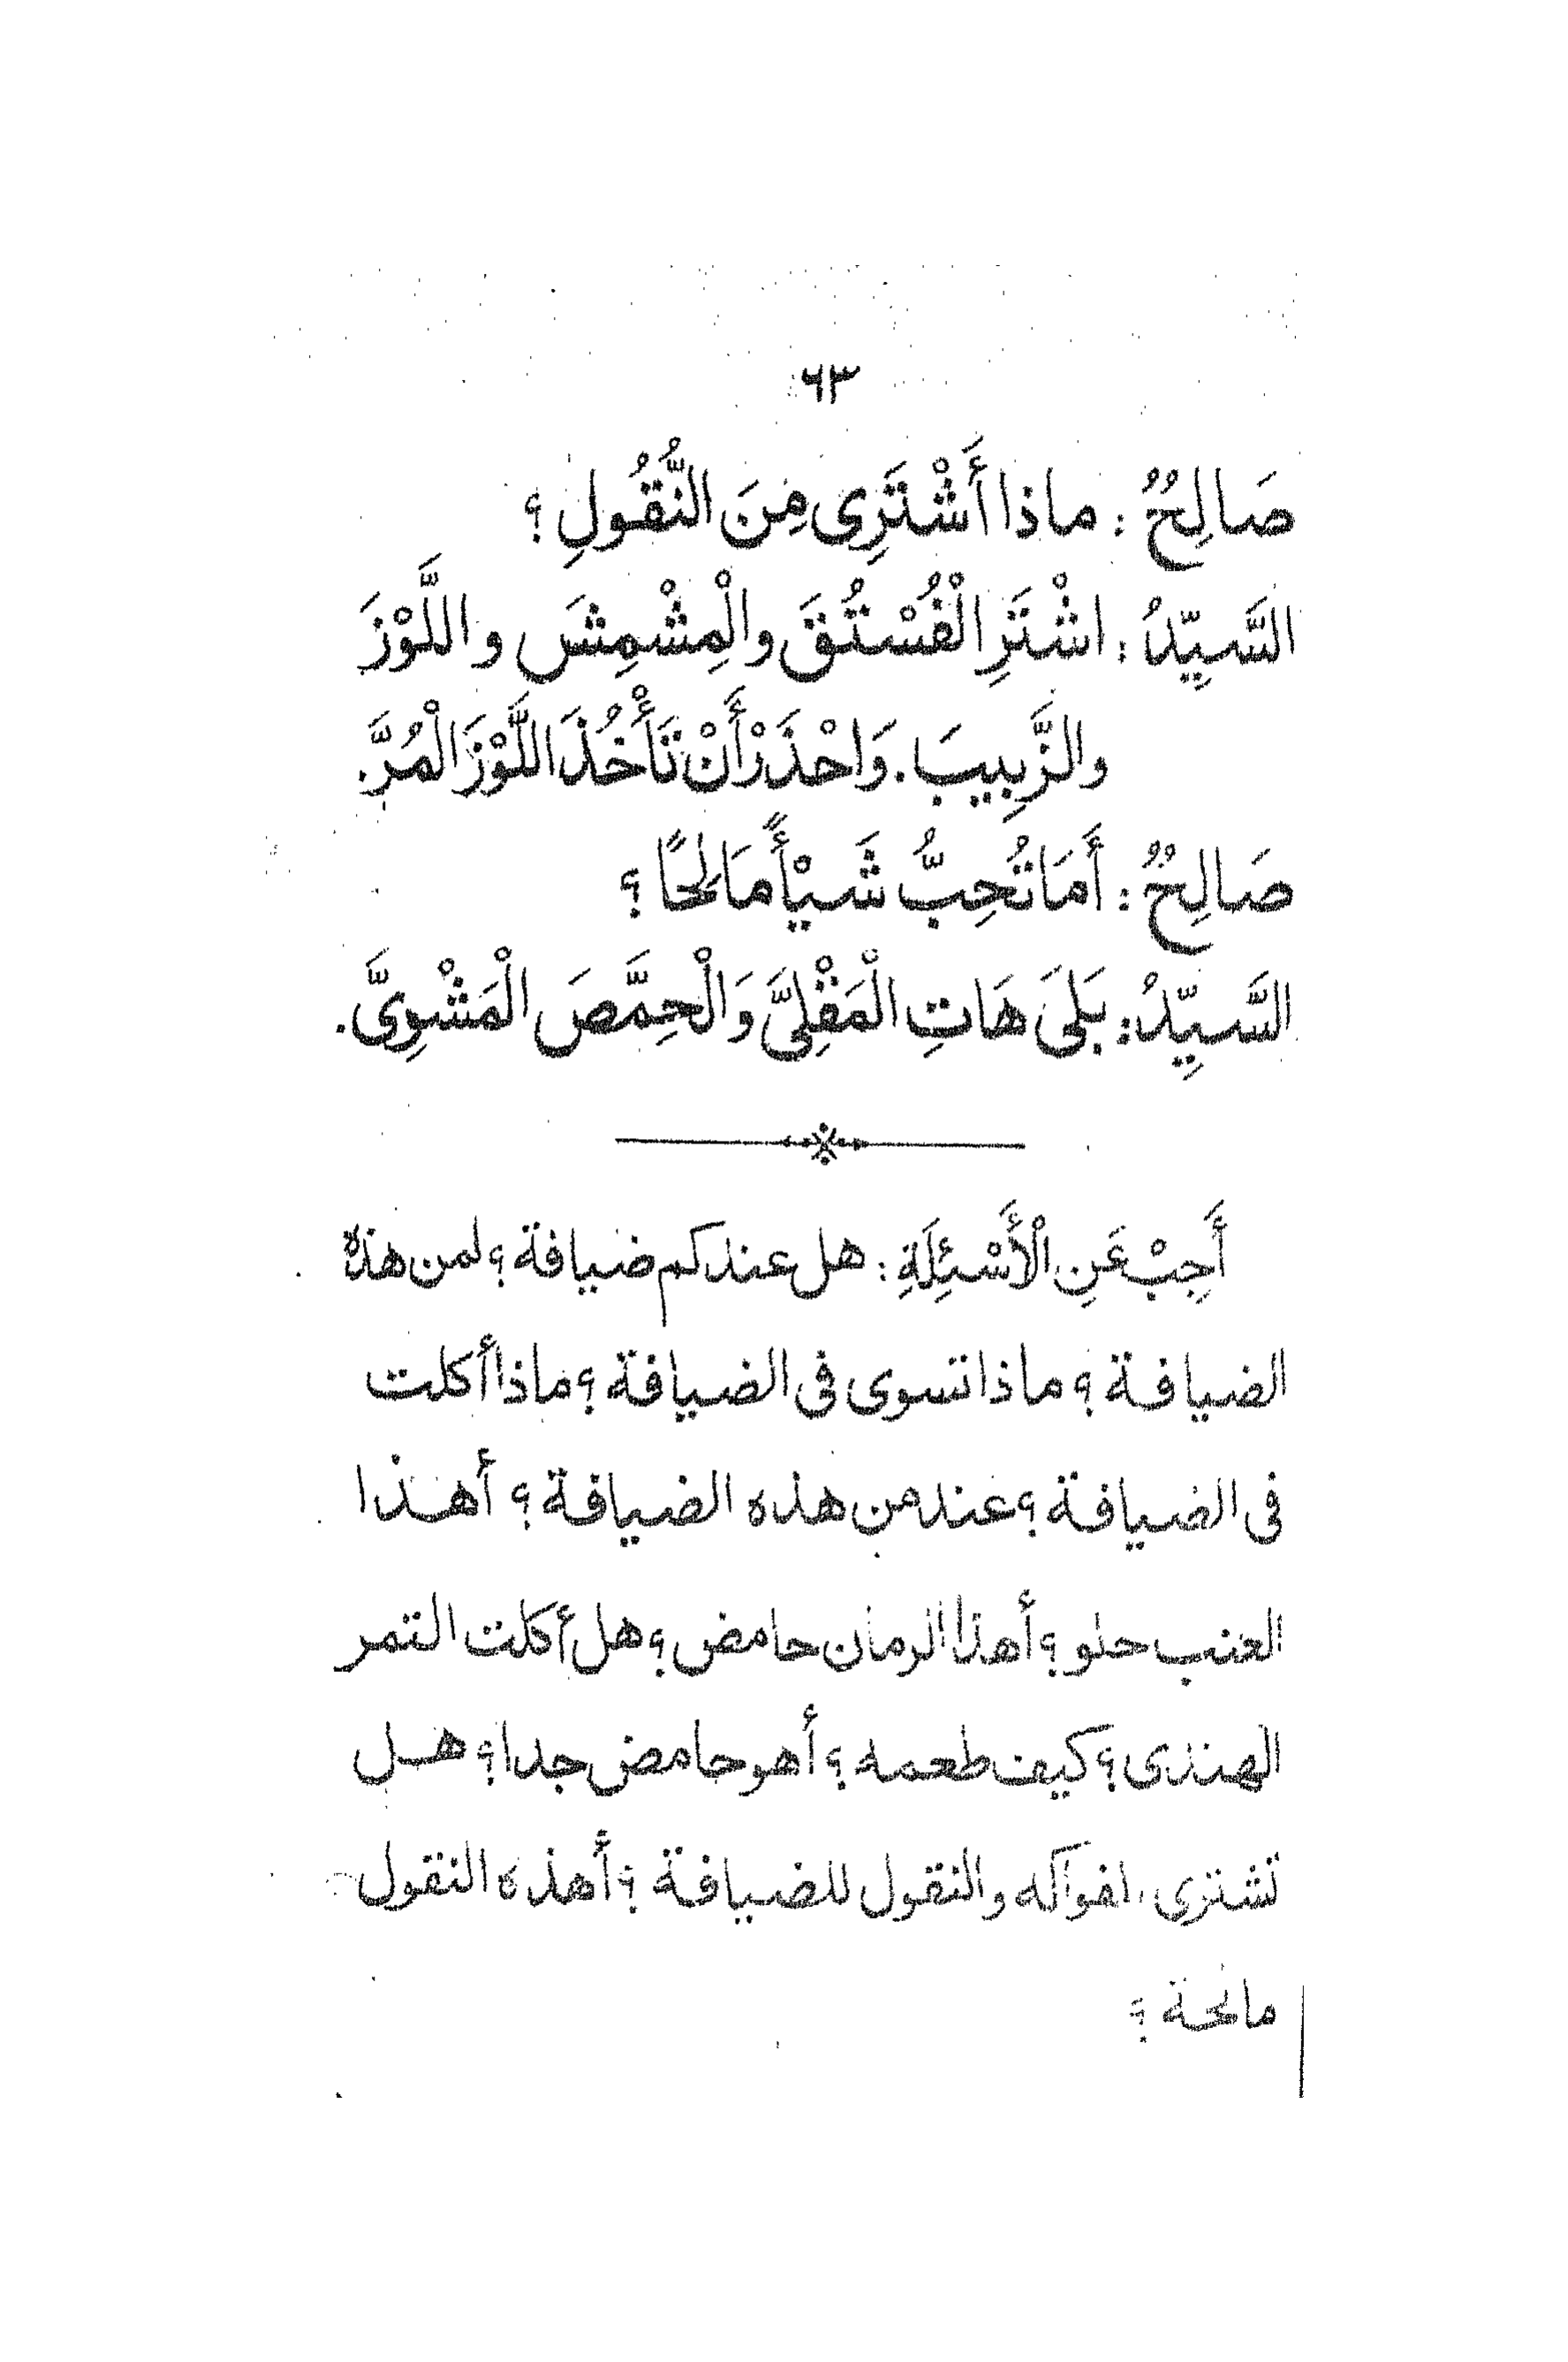 ٦٣
صَالِحٌ : ماذا أَشْتَرِى مِنَ النُّقُولِ ؟
السَّيِّدُ : اشْتَرِ الْفُسْتُقَ والْمِشْمِشَ و اللَّوْزَ
والزَّبِيبَ . وَاحْذَرْ أَنْ تَأْخُذَ اللَّوْزَ الْمُرَّ .
صَالِحٌ : أَمَا تُحِبُّ شَيْأً مَالِحًا ؟
السَّيِّدُ : بَلَى هَاتِ الْمَقْلِىَّ وَالْحِمَّصَ الْمَشْوِىَّ .
أَجِبْ عَنِ الْأَسْئِلَةِ : هل عندكم ضيافة ؟ لمن هذه
الضيافة ؟ ماذا تسوى فى الضيافة ؟ ماذا أكلت
فى الضيافة ؟ عند من هذه الضيافة ؟ أهذا
العنب حلو ؟ أهذا الرمان حامض ؟ هل أكلت التمر
الهندى ؟ كيف طعمه ؟ أهو حامض جدا ؟ هل
تشترى الفواكه والنقول للضيافة ؟ أهذه النقول
مالحة ؟